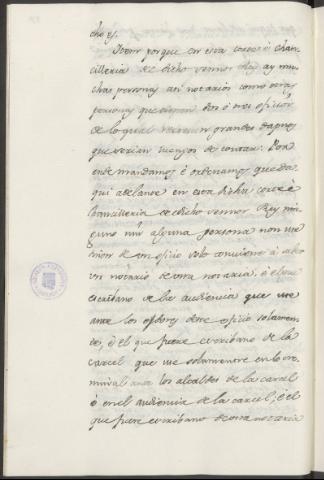 cho es.
Otrosi porque en esta corte é chan
cilleria de dicho sennor Rey ay mu
chas personas asi notarios como otras
personas que tienen dos ó tres oficios
de lo qual nascen grandes dapnos
que serian luengos de contar. Por
ende mandamos é ordenamos que da
qui adelante en esta dicha corte é
chancilleria de dicho sennor Rey nin
guno nin alguna persona non use
sinon de un oficio solo conviene á saber
un notario de una notaria, é el que
escribano de la audiencia que use
ante los oydores deste oficio solamen
te, é el que fuere escribano de la
carcel que use solamente en lo cri
minal ante los alcaldes de la carcel
ó en el audiencia de la carcel, é el
que fuere escribano de una notaria